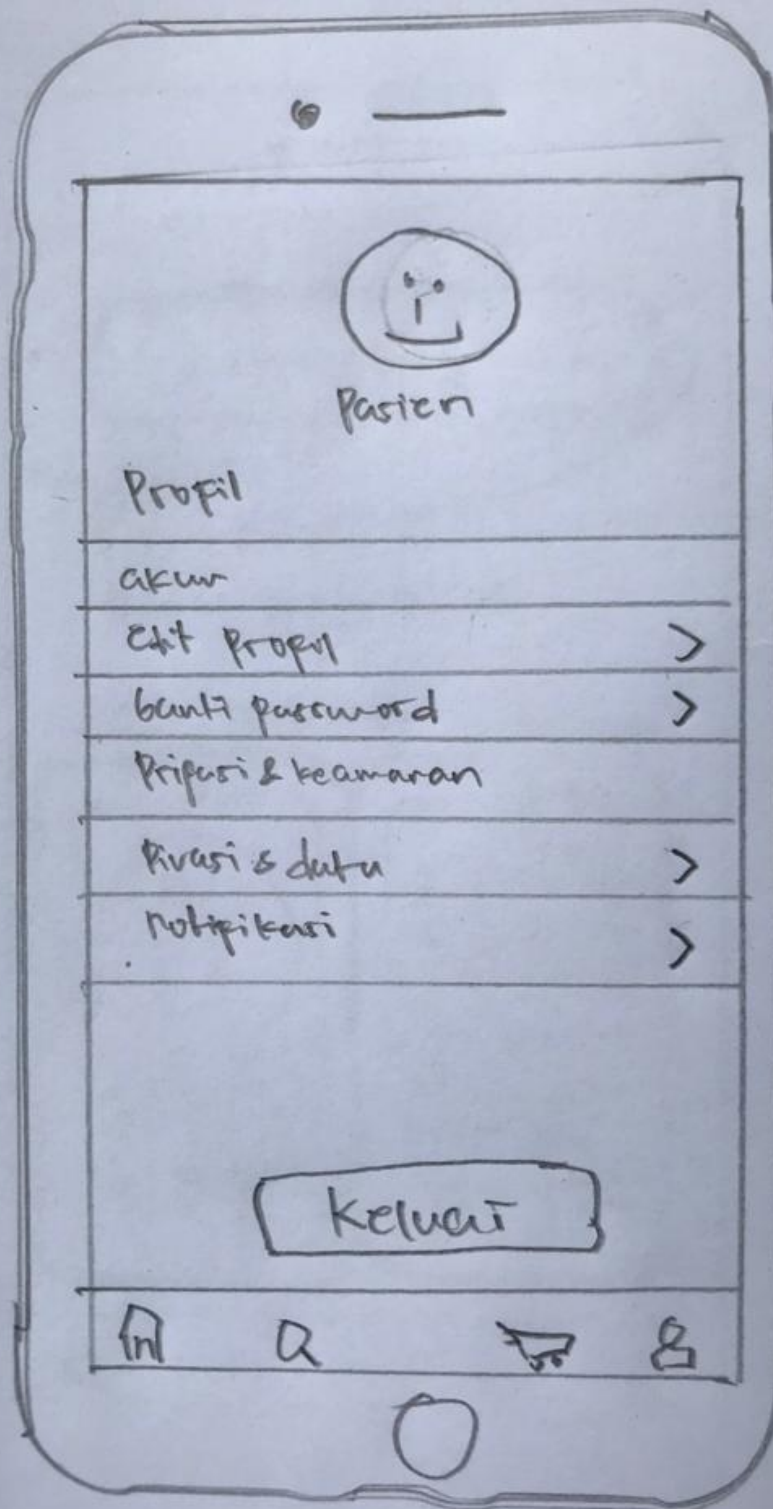 Pasien
Profil
akun
Edit Profil
Ganti password
Pripasi & keamanan
Privasi & data
notifikasi
Keluar